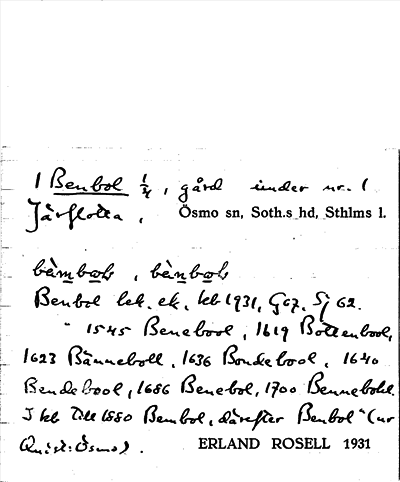 1 Benbol 1/4, gård under nr. 1
Järflotta, Ösmo sn, Soth.s hd, Sthlms l.
Benbol lek. ek, kb 1931, G67, Sj 62.
" 1545 Benebool, 1619 Bottenbool,
1623 Bänneboll, 1636 Bondebool, 1640
Bendebool, 1686 Benebol, 1700 Bennebohl.
I kb till 1880 Bembol, därefter Benbol" (ur
Quist: Ösmo).
ERLAND ROSELL 1931